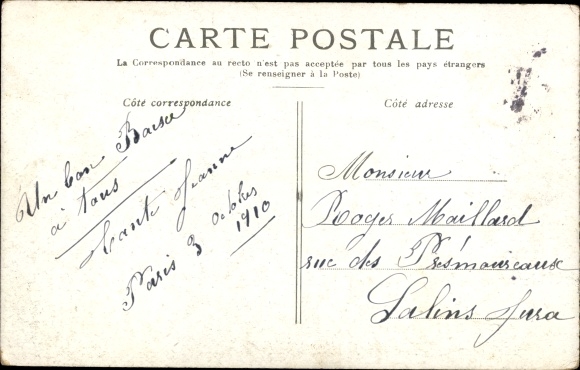 CARTE POSTALE
La Correspondance au recto n'est pas acceptée par tous les pays étrangers
(Se renseigner à la Poste)
Côté correspondance
Un bon Baiser
à tous
Tante Jeanne
Paris 3 Octobre
1910
Côté adresse
Monsieur
Roger Maillard
rue des
Salins Jura